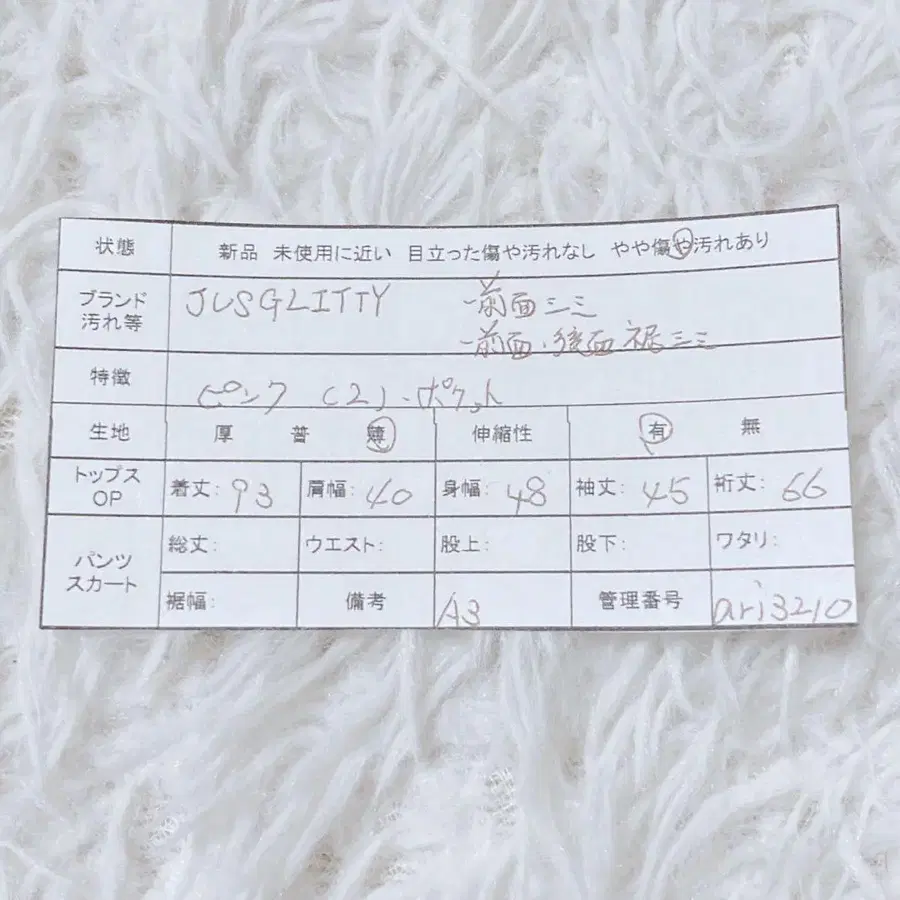 状態 新品 未使用に近い 目立った傷や汚れなし やや傷や汚れあり
ブランド 汚れ等 JUSGLITTY ・前面シミ
・前面、後面裾シミ
特徴 ピンク (2)・ポケット
生地 厚 普 薄 伸縮性 有 無
トップス OP 着丈: 93 肩幅: 40 身幅: 48 袖丈: 45 裄丈: 66
パンツ スカート 総丈: ウエスト: 股上: 股下: ワタリ:
裾幅: 備考 A3 管理番号 ari3210